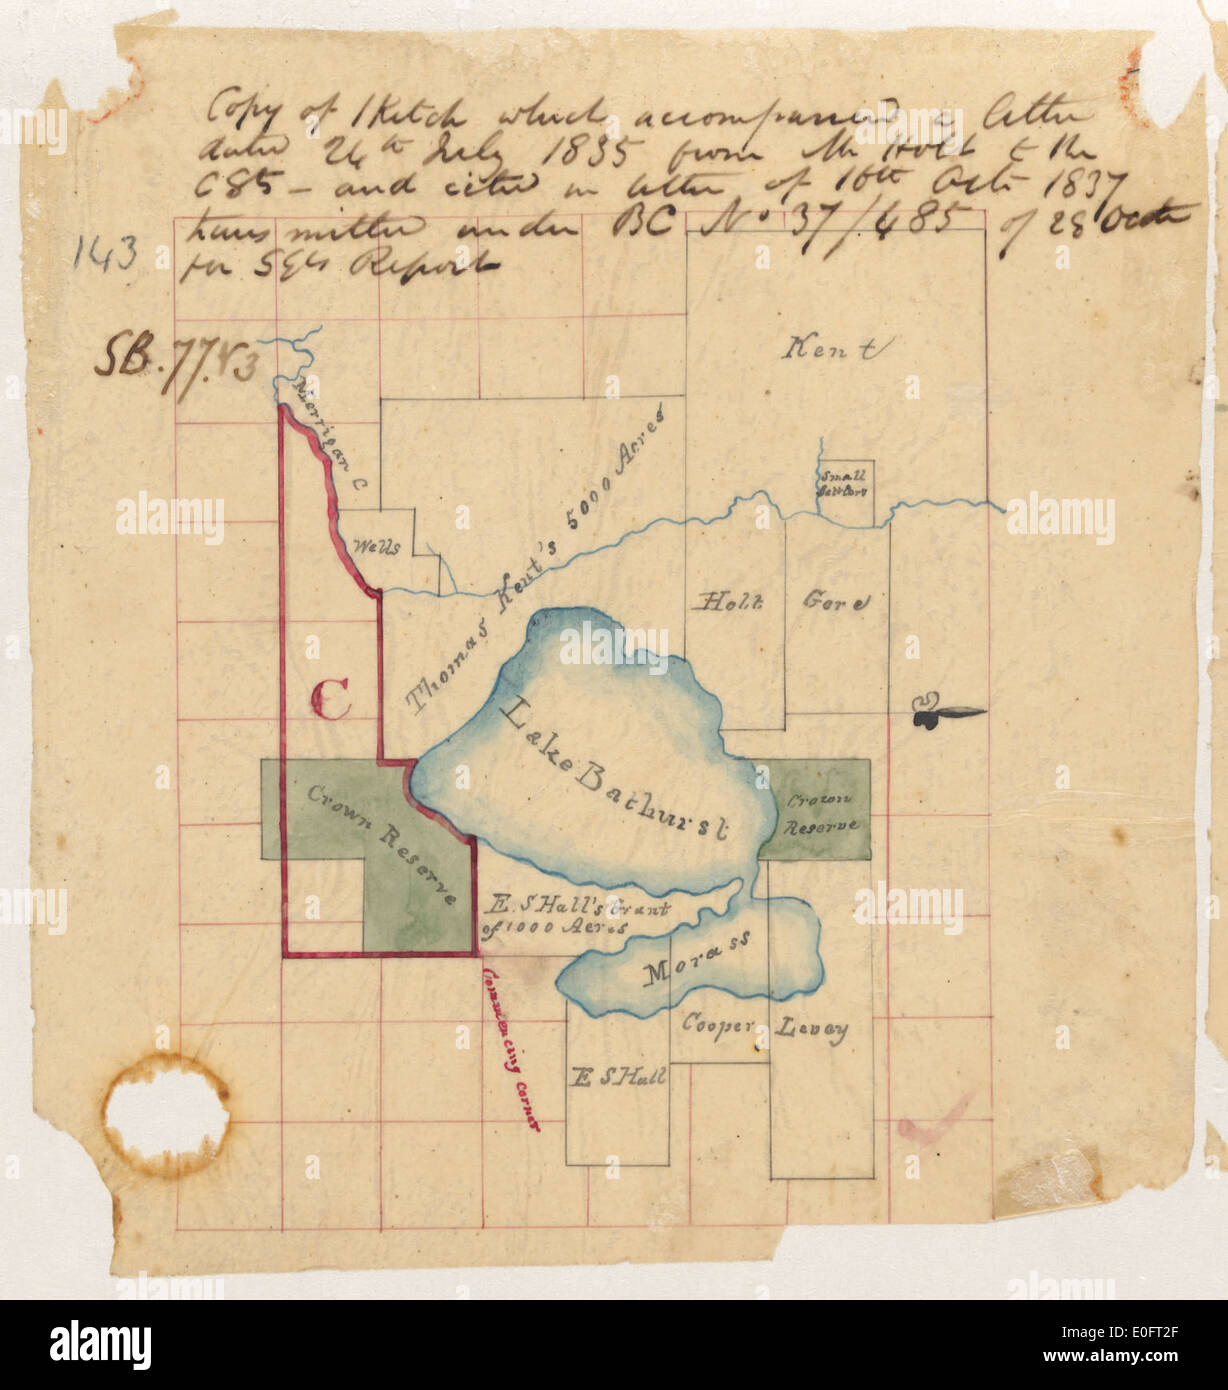 Copy of Sketch which accompanied a letter
dated 24th July 1835 from Mr Holt to the
CSS - and cited in letter of 16th Octr 1837
transmitted under BC No 37/485 of 28 Octr
for SGls Report
143
SB. 77. V3
Kent
Merrigan C
Small
Settlers
Wells
Thomas Kent's 5000 Acres
Holt
Gore
C
Lake Bathurst
Crown Reserve
Crown
Reserve
E. S Hall's Grant
of 1000 Acres
Morass
Commencing Corner
Cooper
Levey
E S Hall
alamy
Image ID: E0FT2F
www.alamy.com